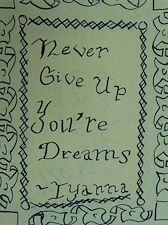 Never
Give Up
y
You're
Dreams
~Iyanna